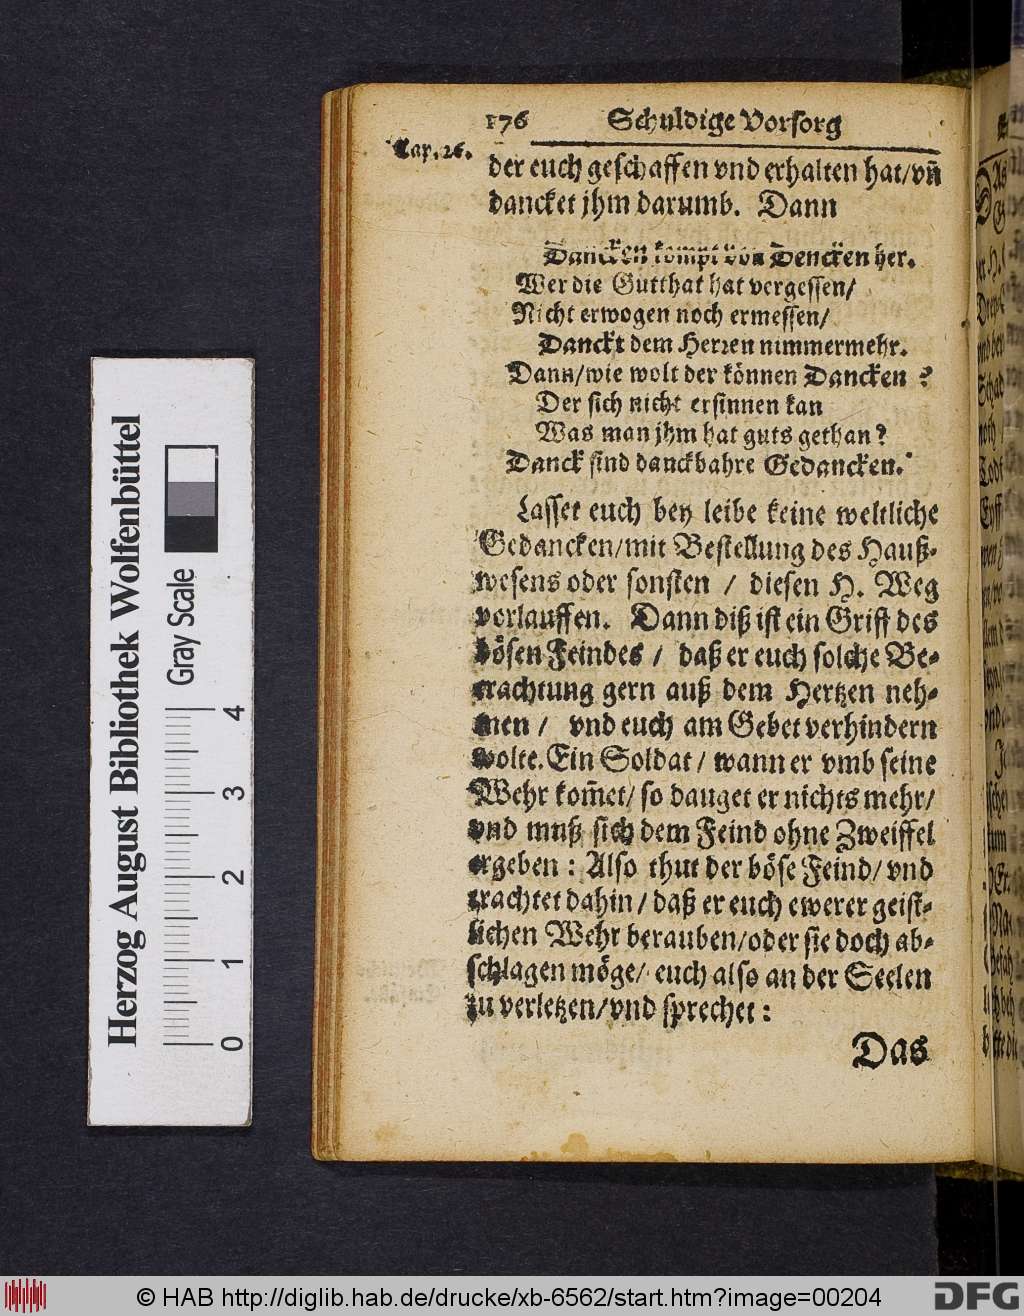 176 Schuldige Vorsorg
Cap. 26.
der euch geschaffen vnd erhalten hat/vn̄
dancket jhm darumb. Dann
Dancken kompt von Dencken her.
Wer die Gutthat hat vergessen/
Nicht erwogen noch ermessen/
Danckt dem Herren nimmermehr.
Dann/wie wolt der können Dancken?
Der sich nicht ersinnen kan
Was man jhm hat guts gethan?
Danck sind danckbahre Gedancken.
Lasset euch bey leibe keine weltliche
Gedancken/mit Bestellung des Hauß-
wesens oder sonsten / diesen H. Weg
vorlauffen. Dann diß ist ein Griff des
bösen Feindes / daß er euch solche Be-
trachtung gern auß dem Hertzen neh-
men / vnd euch am Gebet verhindern
wolte. Ein Soldat / wann er vmb seine
Wehr kom̄et/ so dauget er nichts mehr/
vnd muß sich dem Feind ohne Zweiffel
ergeben: Also thut der böse Feind/ vnd
trachtet dahin / daß er euch ewerer geist-
lichen Wehr berauben/oder sie doch ab-
schlagen möge/ euch also an der Seelen
zu verletzen/vnd sprechet:
Das
Herzog August Bibliothek Wolfenbüttel
Gray Scale
0 1 2 3 4
© HAB http://diglib.hab.de/drucke/xb-6562/start.htm?image=00204
DFG